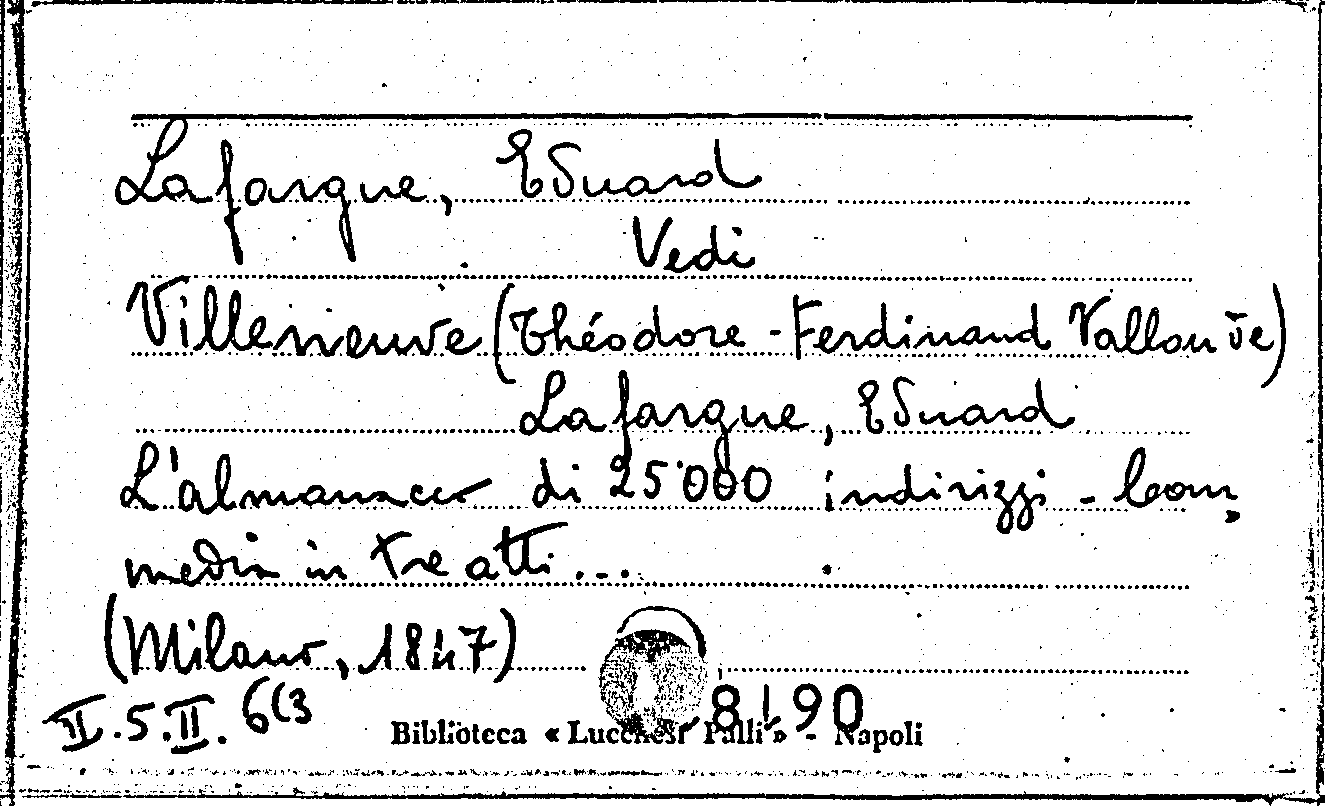 Lafargue, Eduard
Vedi
Villeneuve (Théodore-Ferdinand Vallou de)
Lafargue, Eduard
L'almanacco di 25'000 indirizzi - Com-
media in tre atti...
(Milano, 1847)
II.5.II.6(3
8190
Biblioteca « Lucchesi Palli » - Napoli